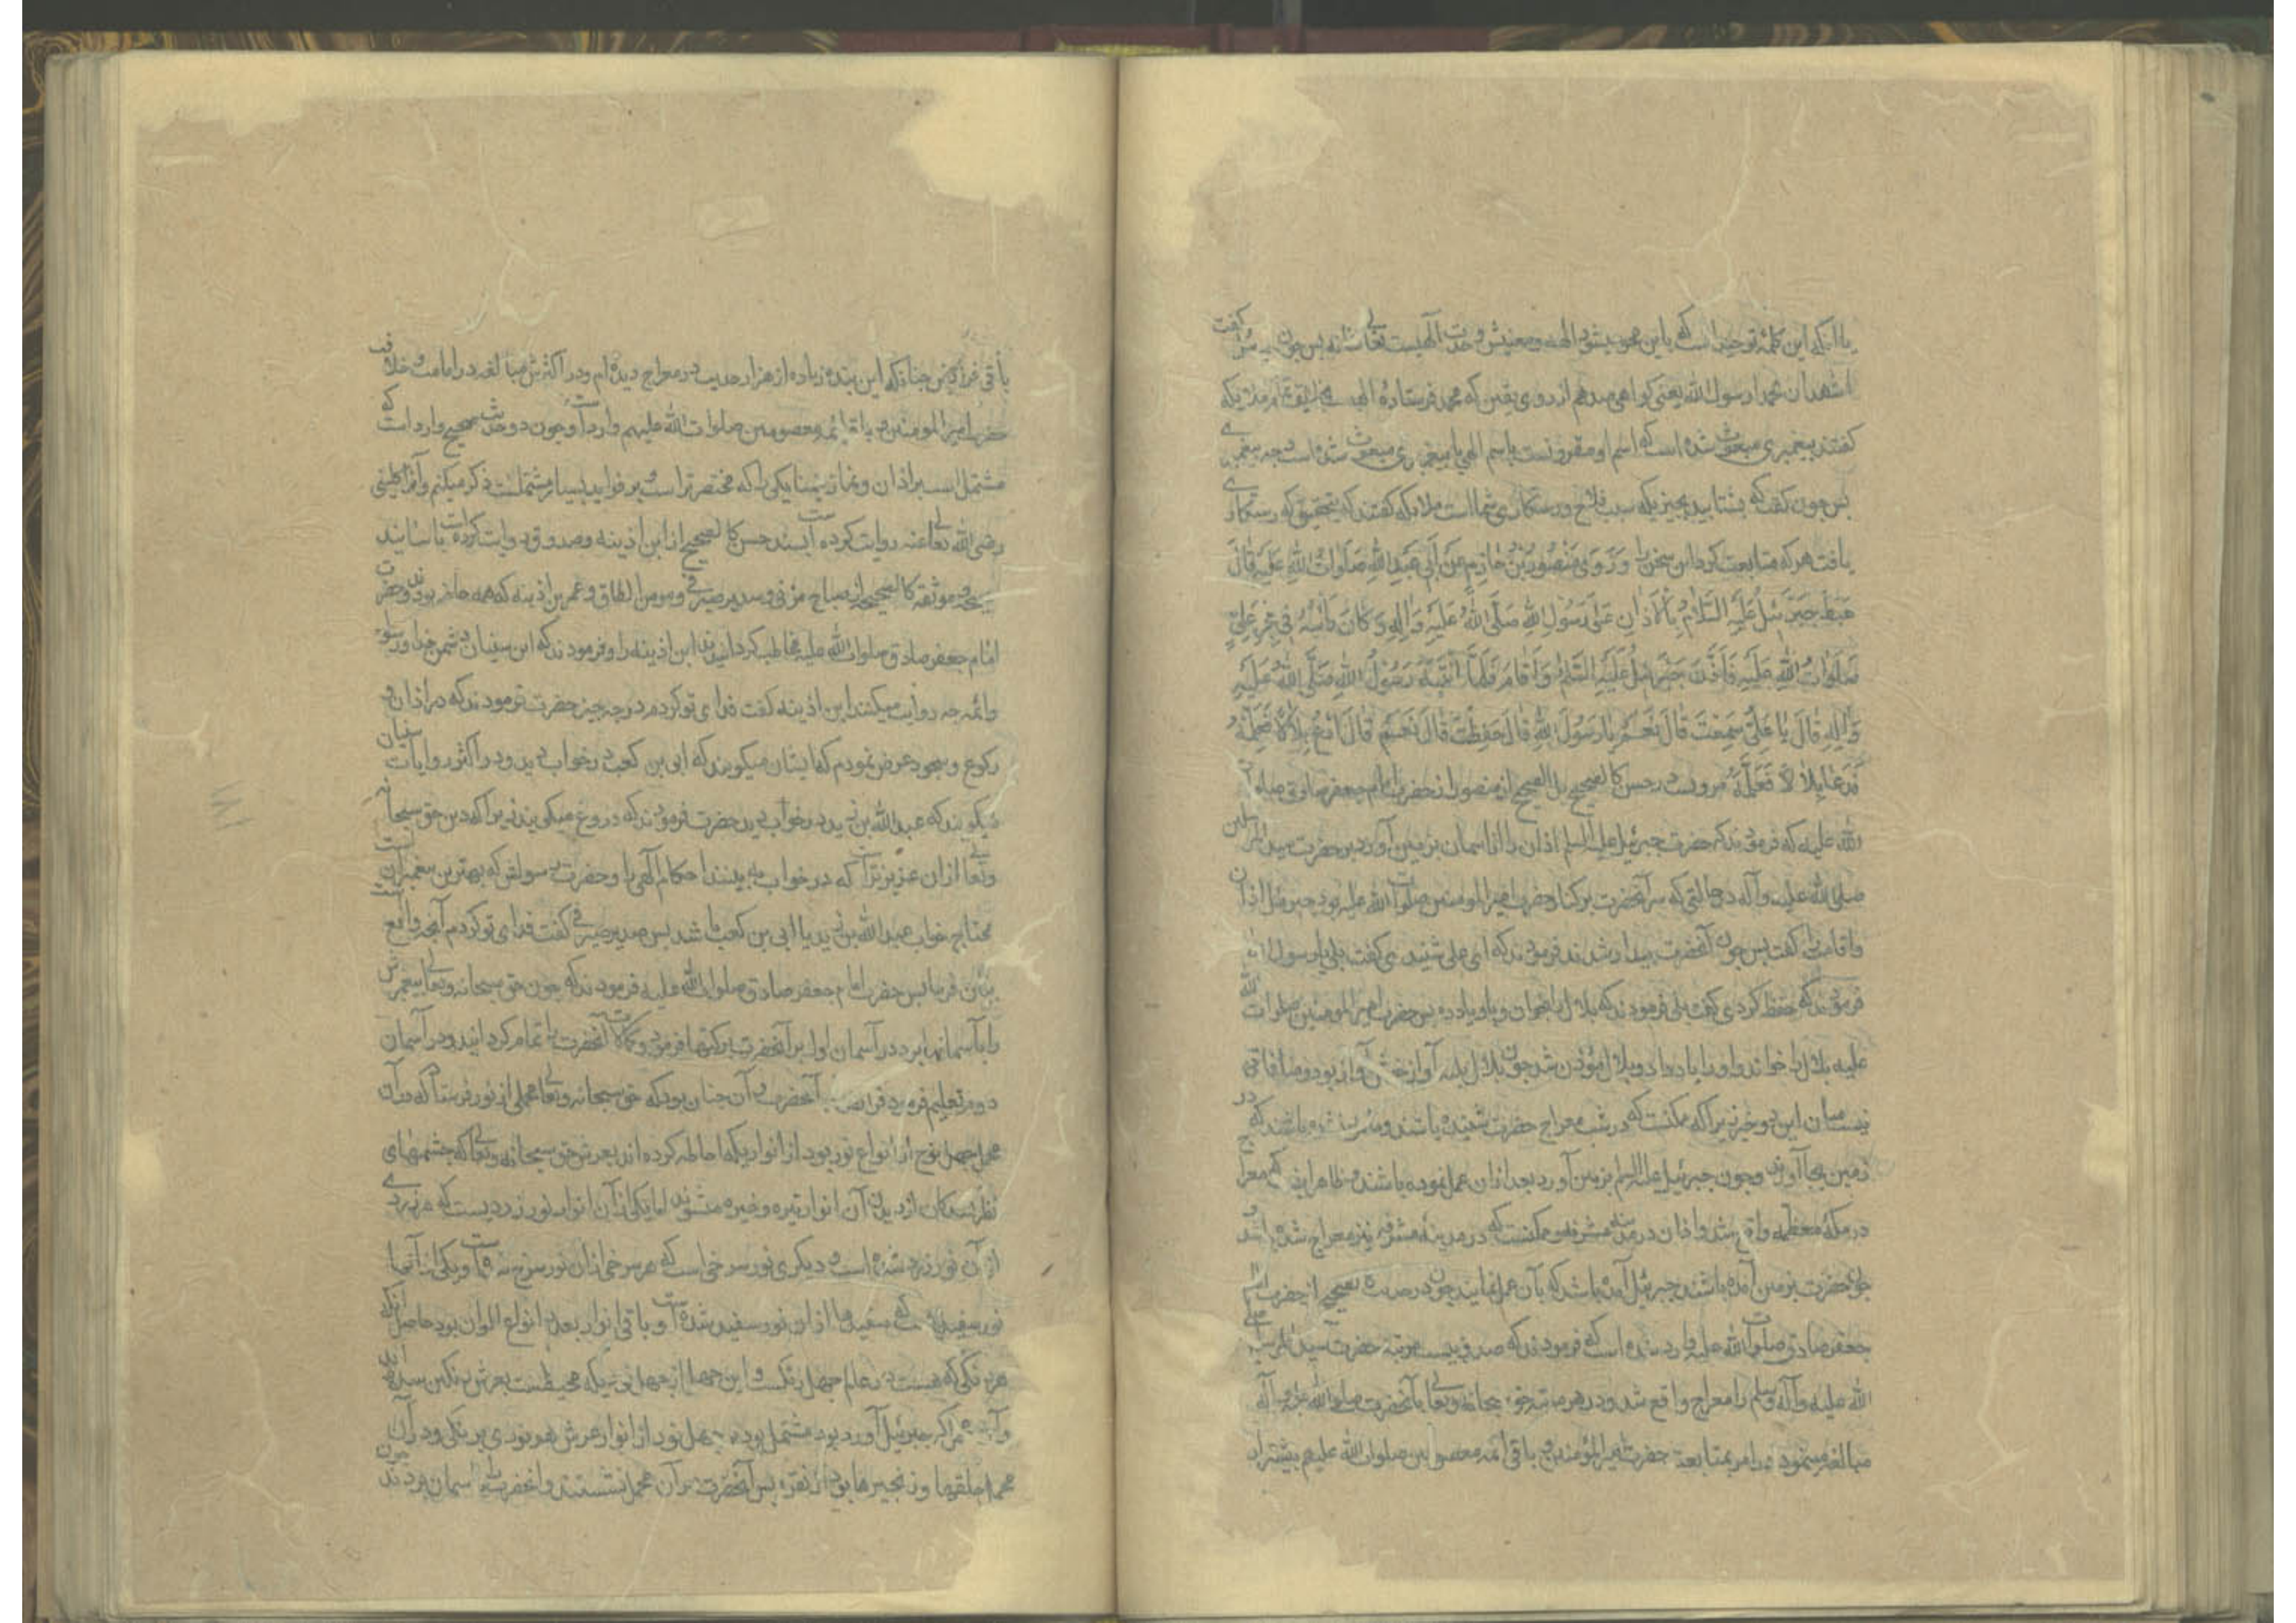 یا آنکه این کلمهٔ توحید است که باین محو میشود الهه و معنیش وحدت آلهیست تعالی شانه پس چون گفت
اشهد ان محمدا رسول الله یعنی کواهی میدهم از روی یقین که محمد فرستادهٔ الهیست ملایکه
کفتند پیغمبری مبعوث شده است که اسم او مقرونست باسم الهی یا پیغمبری مبعوث شده است چه پیغمبری
پس چون کفت که بشتابید بچیزیکه سبب فلاح و رستکاری شما است ملایکه کفتند که بتحقیق که رستکاری
یافت هر که متابعت کرد این سخن را وَرَوَی مَنْصُورُ بْنُ حَازِمٍ عَنْ أَبِی عَبْدِ اللّٰهِ صَلَوَاتُ اللّٰهِ عَلَیْهِ قَالَ
هَبَطَ جَبْرَئِیلُ عَلَیْهِ السَّلَامُ بِالْأَذَانِ عَلَی رَسُولِ اللّٰهِ صَلَّی اللّٰهُ عَلَیْهِ وَآلِهِ وَکَانَ رَأْسُهُ فِی حِجْرِ عَلِیٍّ
صَلَوَاتُ اللّٰهِ عَلَیْهِ فَأَذَّنَ جَبْرَئِیلُ عَلَیْهِ السَّلَامُ وَأَقَامَ فَلَمَّا انْتَبَهَ رَسُولُ اللّٰهِ صَلَّی اللّٰهُ عَلَیْهِ
وَآلِهِ قَالَ یَا عَلِیُّ سَمِعْتَ قَالَ نَعَمْ یَا رَسُولَ اللّٰهِ قَالَ حَفِظْتَ قَالَ نَعَمْ قَالَ ادْعُ بِلَالًا فَعَلِّمْهُ
فَدَعَا بِلَالًا فَعَلَّمَهُ مرویست در حسن کالصحیح بل الصحیح از منصور از حضرت امام جعفر صادق صلوات
الله علیه که فرمودند که حضرت جبرئیل علیه السلم اذان را از آسمان بزمین آورد بر حضرت سید المرسلین
صلی الله علیه وآله در حالتی که سر آنحضرت بر کنار حضرت امیر المومنین صلوات الله علیه بود جبرئیل اذان
و اقامت را کفت پس چون آنحضرت بیدار شدند فرمودند که ای علی شنیدی کفت بلی یا رسول الله
فرمودند که حفظ کردی کفت بلی فرمودند که بلال را بخوان و باو یاد ده پس حضرت امیر المومنین صلوات الله
علیه بلال را خواند و او را یاد داد و بلال مؤذن شد چون بلال بلند آواز خوش آواز بود و منافاتی
نیست میان این دو خبر زیرا که ممکنست که در شب معراج حضرت شنیده باشند و باشند که در
زمین بجا آورند و چون جبرئیل علیه السلم بزمین آورد بعد از ان عمل نموده باشند و ظاهرا معراج
در مکهٔ معظمه واقع شد و اذان در مدینه مشرفه و ممکنست که در مدینه مشرفه نیز معراج شده باشد و
چون حضرت بزمین آمده باشند جبرئیل آمده باشد که بآن عمل نمایند چون در حدیث صحیح از حضرت امام
جعفر صادق صلوات الله علیه وارد شده است که فرمودند که صد و بیست مرتبه حضرت سید المرسلین صلی
الله علیه وآله وسلم را معراج واقع شد و در هر مرتبه حق سبحانه وتعالی بآنحضرت صلی الله علیه وآله
مبالغه مینمود در امر بمتابعت حضرت امیر المؤمنین و باقی ائمه معصومین صلوات الله علیهم بیشتر از
باقی فرایض چنانکه این بنده زیاده از هزار حدیث در معراج دیده ام و در اکثرش مبالغه در امامت و خلافت
حضرت امیر المومنین و باقی ائمه معصومین صلوات الله علیهم وارد است و چون دو حدیث صحیح وارد است که
مشتمل است بر اذان و نماز یکی را که مختصرتر است و بر فواید بسیار مشتملست ذکر میکنم و آنرا کلینی
رضی الله تعالی عنه روایت کرده است بسند حسن کالصحیح از ابن اذینه و صدوق روایت کرده است باسانید
صحیحه و موثقه کالصحیحه از صباح مزنی و سدیر صیرفی و مومن الطاق و عمر بن اذینه که همه حاضر بودند و حضرت
امام جعفر صادق صلوات الله علیه مخاطب کردانیدند ابن اذینه را و فرمودند که این سنیان دشمن خدا و رسول
و ائمه چه روایت میکنند ابن اذینه کفت فدای تو کردم در چه چیز حضرت فرمودند که در اذان و
رکوع و سجود عرض نمودم که ایشان میکویند که ابی بن کعب در خواب دید و در اکثر روایات سنیان
میکویند که عبد الله بن زید در خواب دید حضرت فرمودند که دروغ میکویند زیرا که دین حق سبحانه
وتعالی از ان عزیزتر است که در خواب ببینند احکام آلهی را و حضرت رسولش که بهترین پیغمبران است
محتاج خواب عبد الله بن زید یا ابی بن کعب باشد پس سدیر صیرفی کفت فدای تو کردم آنچه واقع است
بیان فرما پس حضرت امام جعفر صادق صلوات الله علیه فرمودند که چون حق سبحانه وتعالی پیغمبرش
را بآسمانها برد در آسمان اول بر آنحضرت برکتها فرمود و کمالات آنحضرت را تمام کردانید و در آسمان
دوم تعلیم فرمود فرایض بآنحضرت و آن چنان بود که حق سبحانه وتعالی محملی از نور فرستاد که در آن
محمل چهل نوع از انواع نور بود از انواریکه احاطه کرده اند بعرش حق سبحانه وتعالی که چشمهای
نظر کنندکان از دیدن آن انوار تیره و خیره میشوند اما یکی از آن انوار نور زردیست که هر زردی
از آن نور زرد شده است و دیکری نور سرخی است که هر سرخی از ان نور سرخ شده است و یکی از آنها
نور سفید است که سفیدیها از ان نور سفید شده است و باقی انوار بعدد انواع الوان بود حاصل آنکه
هر رنکی که هست در عالم چهل رنکست و این چهل از چهل نوریکه محیطست بعرش رنکین شده اند
و آن محمل که جبرئیل آورد بود مشتمل بود بر چهل نور از انوار عرش هر نوری برنکی و در آن
محمل حلقها و زنجیرها بود از نقره پس آنحضرت بر آن محمل نشستند و آنحضرت را بآسمان بردند چون